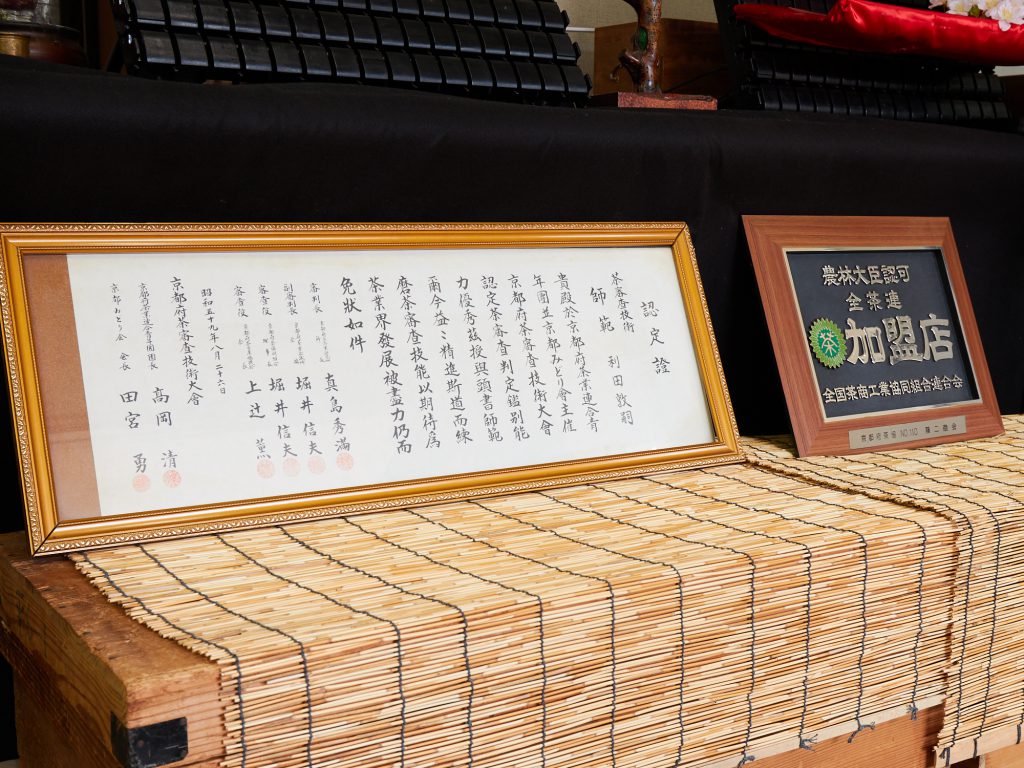 認定證
茶審査技術
師範 利田敦嗣
貴殿於京都府茶業連合青
年團並京都みとり會主催
京都府茶審査技術大會
認定茶審査判定鑑別能
力優秀茲授與頭書師範
爾今益〻精進斯道而練
磨茶審査技能以期待為
茶業界發展被盡力仍而
免狀如件
審判長 真島秀満
副審判長 堀井信夫
審査役 堀井信夫
審査役 上辻薫
昭和五十九年八月二十六日
京都府茶審査技術大會
京都府茶業連合青年團團長 高岡清
京都みとり会会長 田宮勇
農林大臣認可
全茶連
茶 加盟店
全国茶商工業協同組合連合会
京都府茶協 NO.110